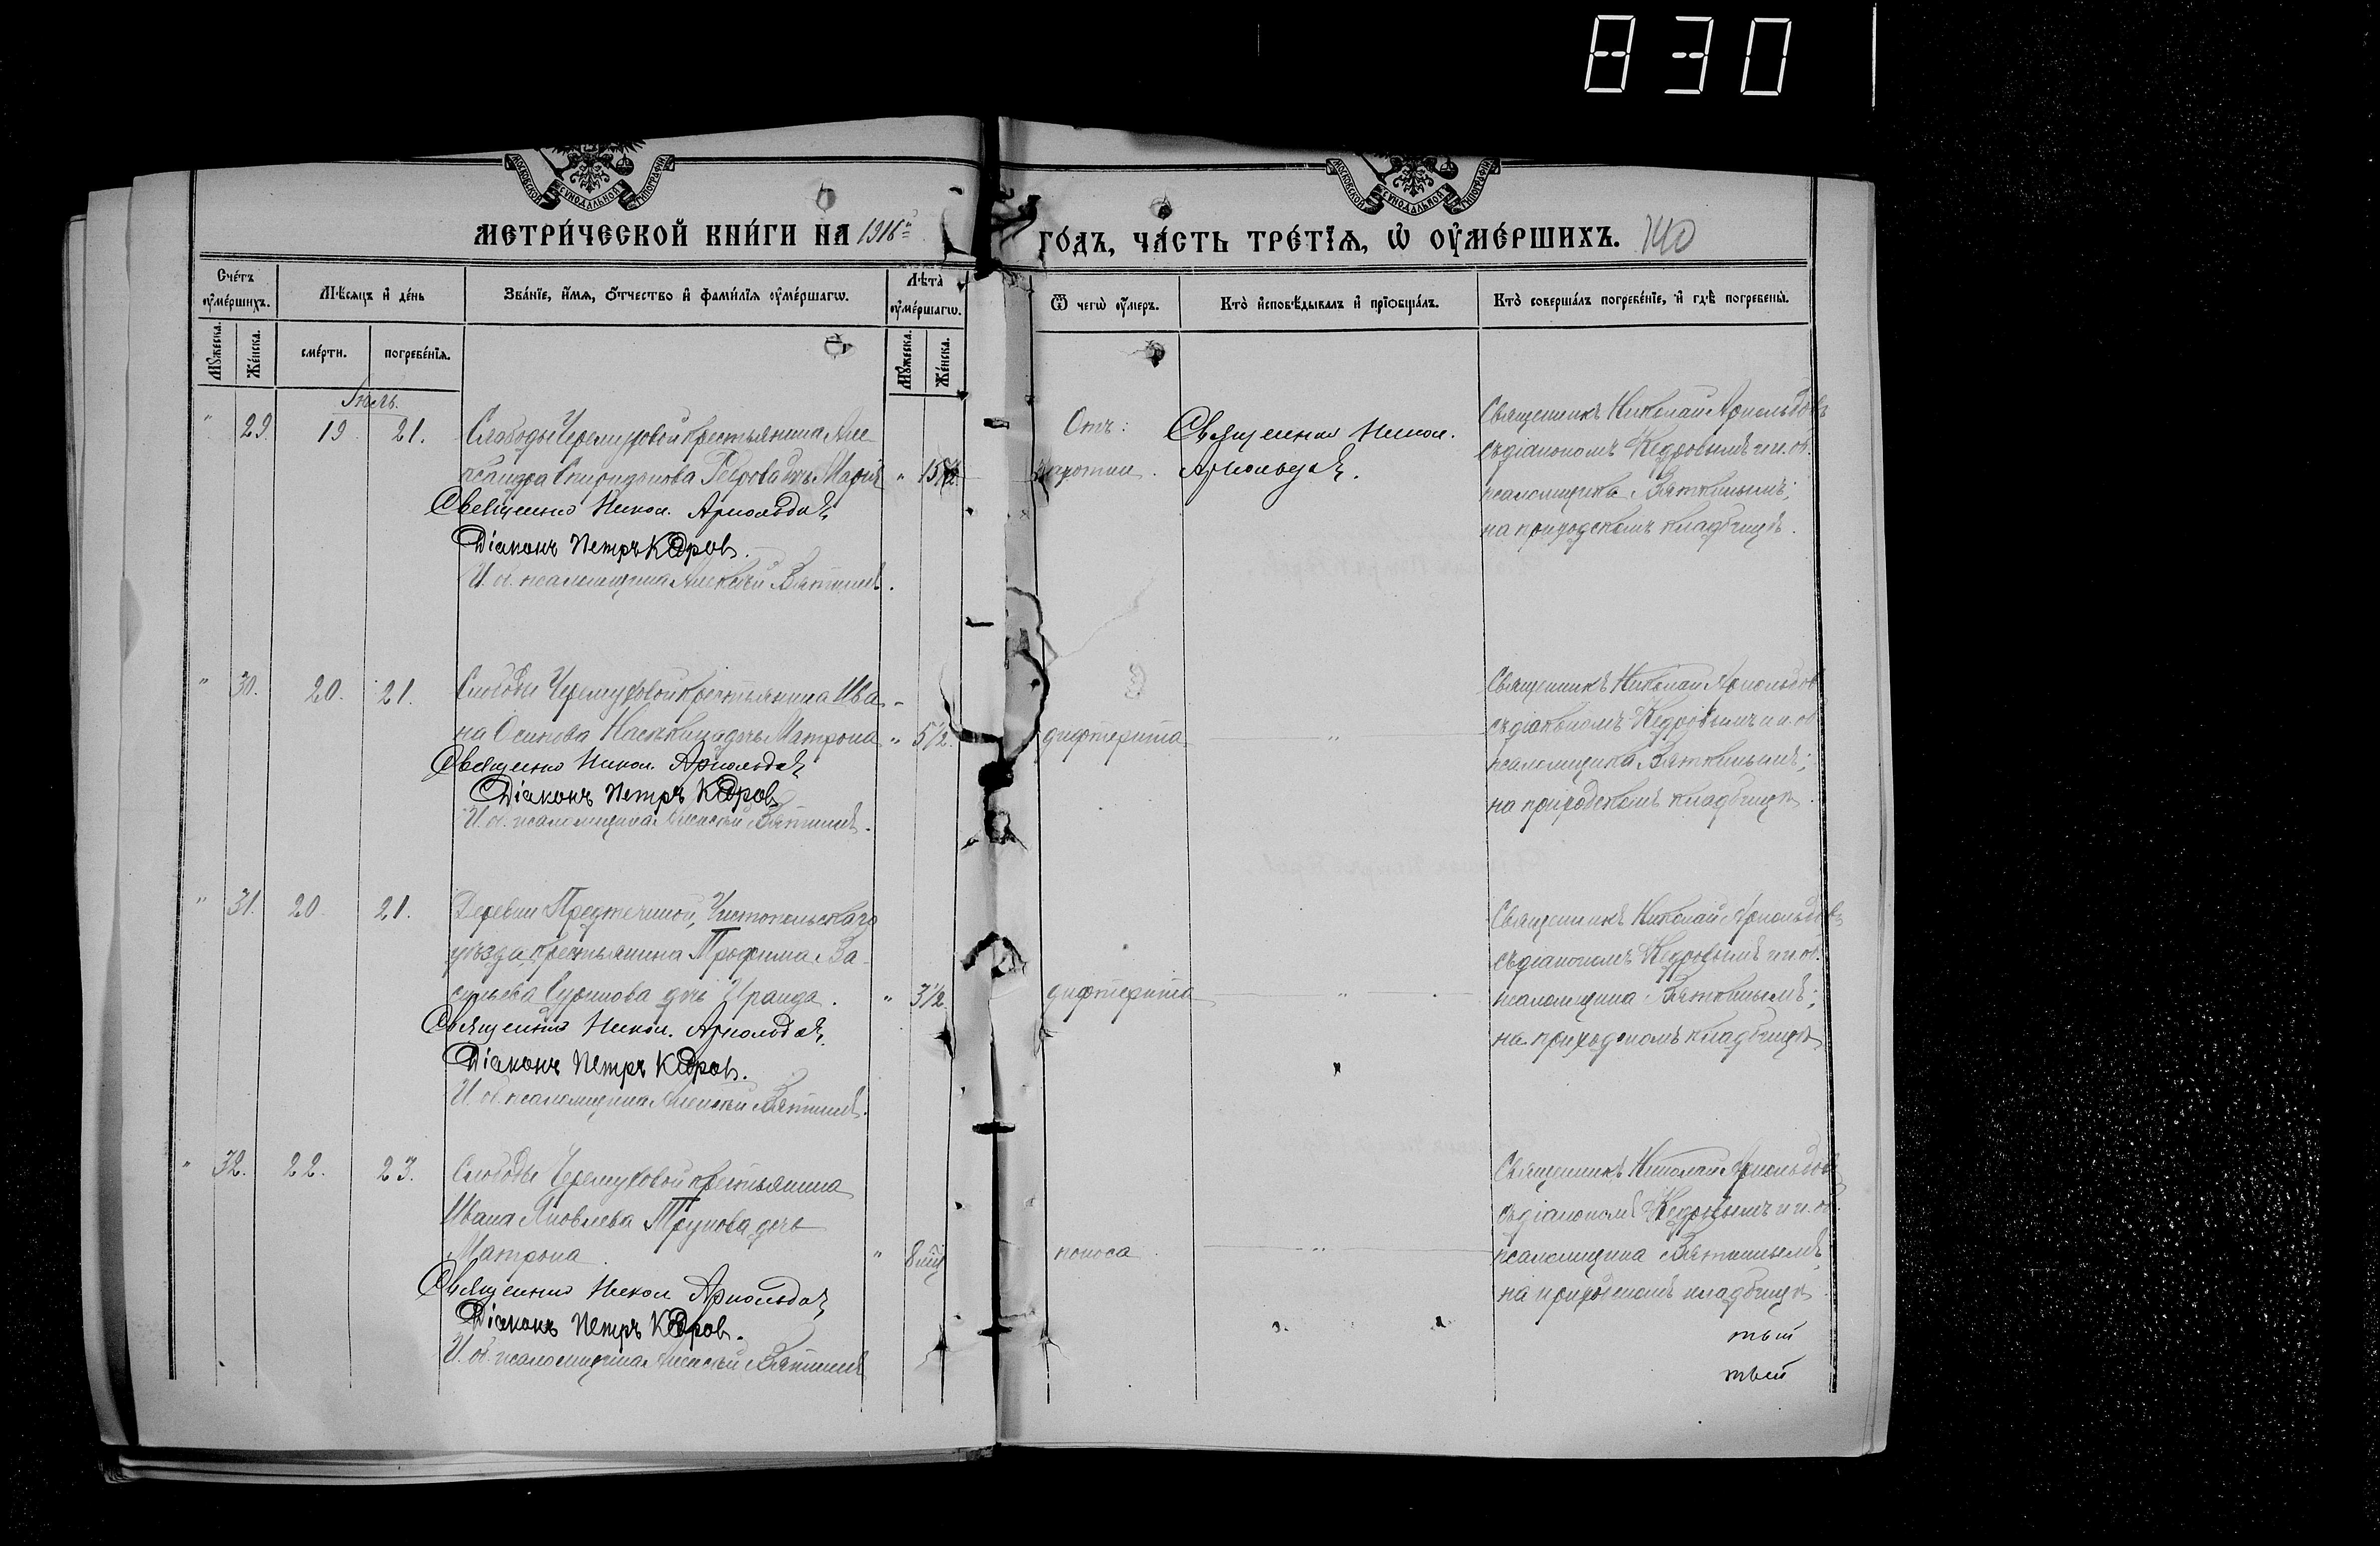 830
МОСКОВСКОЙ СѴНОДАЛЬНОЙ ТИПОГРАФІИ
МОСКОВСКОЙ СѴНОДАЛЬНОЙ ТИПОГРАФІИ
МЕТРИ́ЧЕСКОЙ КНИ́ГИ НА 1916й
ГО́ДЪ, ЧА́СТЬ ТРЕ́ТІѦ, Ѡ҆ ОУ҆МЕ́РШИХЪ. 140
Сче́тъ оу҆ме́ршихъ.
Мѣ́сяцъ и҆ де́нь
Зва́нїе, и҆́мя, ѻ҆́тчество и҆ фами́лїя оу҆ме́ршагѡ.
Лѣта̀ оу҆ме́ршагѡ.
Ѿ чегѡ̀ оу҆́меръ.
Кто̀ и҆сповѣ́дывалъ и҆ прїѡбща́лъ.
Кто̀ соверша́лъ погребе́нїе, и҆ гдѣ̀ погребены̀.
Мꙋ́жеска.
Же́нска.
сме́рти.
погребе́нїя.
Мꙋ́жеска.
Же́нска.
Іюль.
" 29. 19 21. Слободы Черемуховой крестьянина Але-
ксандра Спиридонова дочь Марія " 15
Священникъ Никол. Арнольдовъ
Діаконъ Петръ Кедровъ.
И. об. псаломщика Алексѣй Вяткинъ.
Отъ:
Священникъ Никол.
Арнольдовъ.
Священникъ Николай Арнольдовъ
съ діакономъ Кедровымъ и и. об.
псаломщика Вяткинымъ;
на приходскомъ кладбищѣ.
" 30. 20. 21. Слободы Черемуховой крестьянина Ива-
на Осипова дочь Матрона " 5½.
Священникъ Никол. Арнольдовъ
Діаконъ Петръ Кедровъ
И. об. псаломщика Алексѣй Вяткинъ.
дифтерита "
Священникъ Николай Арнольдовъ
съ діакономъ Кедровымъ и и. об.
псаломщика Вяткинымъ;
на приходскомъ кладбищѣ.
" 31. 20. 21. Деревни Чистопольскаго
уѣзда, крестьянина Трофима Ва-
сильева дочь Ираида. " 3½
Священникъ Никол. Арнольдовъ.
Діаконъ Петръ Кедровъ.
И. об. псаломщика Алексѣй Вяткинъ.
дифтерита "
Священникъ Николай Арнольдовъ
съ діакономъ Кедровымъ и и. об.
псаломщика Вяткинымъ;
на приходскомъ кладбищѣ
" 32. 22. 23. Слободы Черемуховой крестьянина
Ивана Яковлева дочь
Матрона. " 8
Священникъ Никол Арнольдовъ
Діаконъ Петръ Кедровъ.
И. об. псаломщика Алексѣй Вяткинъ
поноса "
Священникъ Николай Арнольдовъ
съ діакономъ Кедровымъ и и. об.
псаломщика Вяткинымъ;
на приходскомъ кладбищѣ.